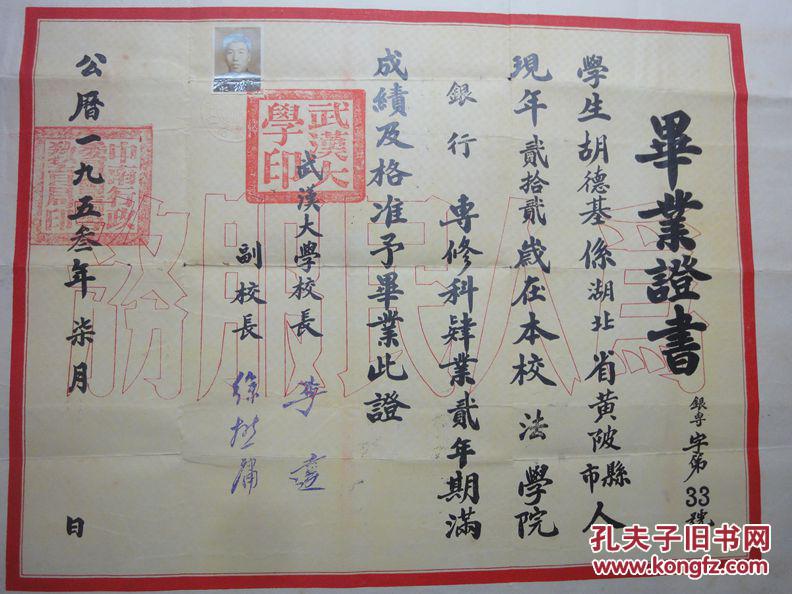 畢業證書
銀專字第33號
學生胡德基係湖北省黃陂縣市人
現年貳拾貳歲在本校法學院
銀行專修科肄業貳年期滿
成績及格准予畢業此證
武漢大學印
武漢大學校長 李達
副校長 徐懋庸
公曆一九五叁年柒月 日
為人民服務
孔夫子旧书网
www.kongfz.com